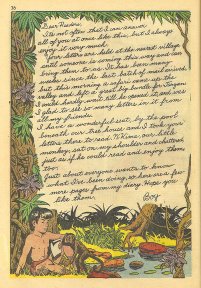 36
Dear Readers,
It's not often that I can answer
all of you at once like this, but I always
enjoy it very much.
Your letters are held at the nearest village
until someone is coming this way and can
bring them to us. It has been many
since the last batch of mail arrived
but this morning a safari came up the
valley and left a great big bundle for
I could hardly wait till he opened it, and was
glad to see so many letters in it from
all my friends.
I have a wonderful seat by the pool
beneath our tree house and I took your
letters there to read. N'Kima, our little
monkey, sat on my shoulder and chattered
just as if he could read and enjoy them
too.
Just about everyone wants to know
what I've been doing, so here are a few
more pages from my diary. Hope you
like them.
Boy